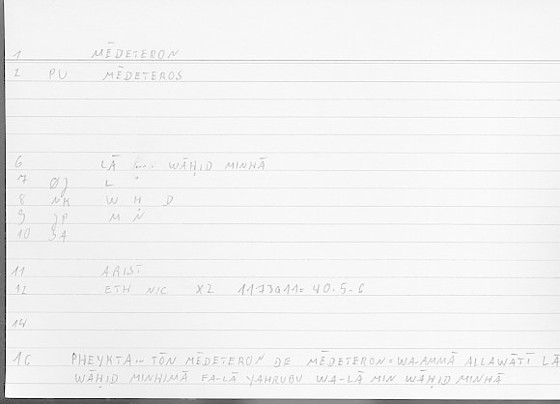 1 MĒDETERON
2 PU MĒDETEROS
6 LĀ .... WĀḤID MINHĀ
7 ØJ L
8 NK W Ḥ D
9 JP M N
10 SA
11 ARIST
12 ETH NIC X2 1173a11= 40.5-6
14
16 PHEYKTA... TŌN MĒDETERŌN DE MĒDETERON = WA-AMMĀ ALLAWĀTĪ LĀ
WĀḤID MINHIMĀ FA-LĀ YAHRUBU WA-LĀ MIN WĀḤID MINHĀ